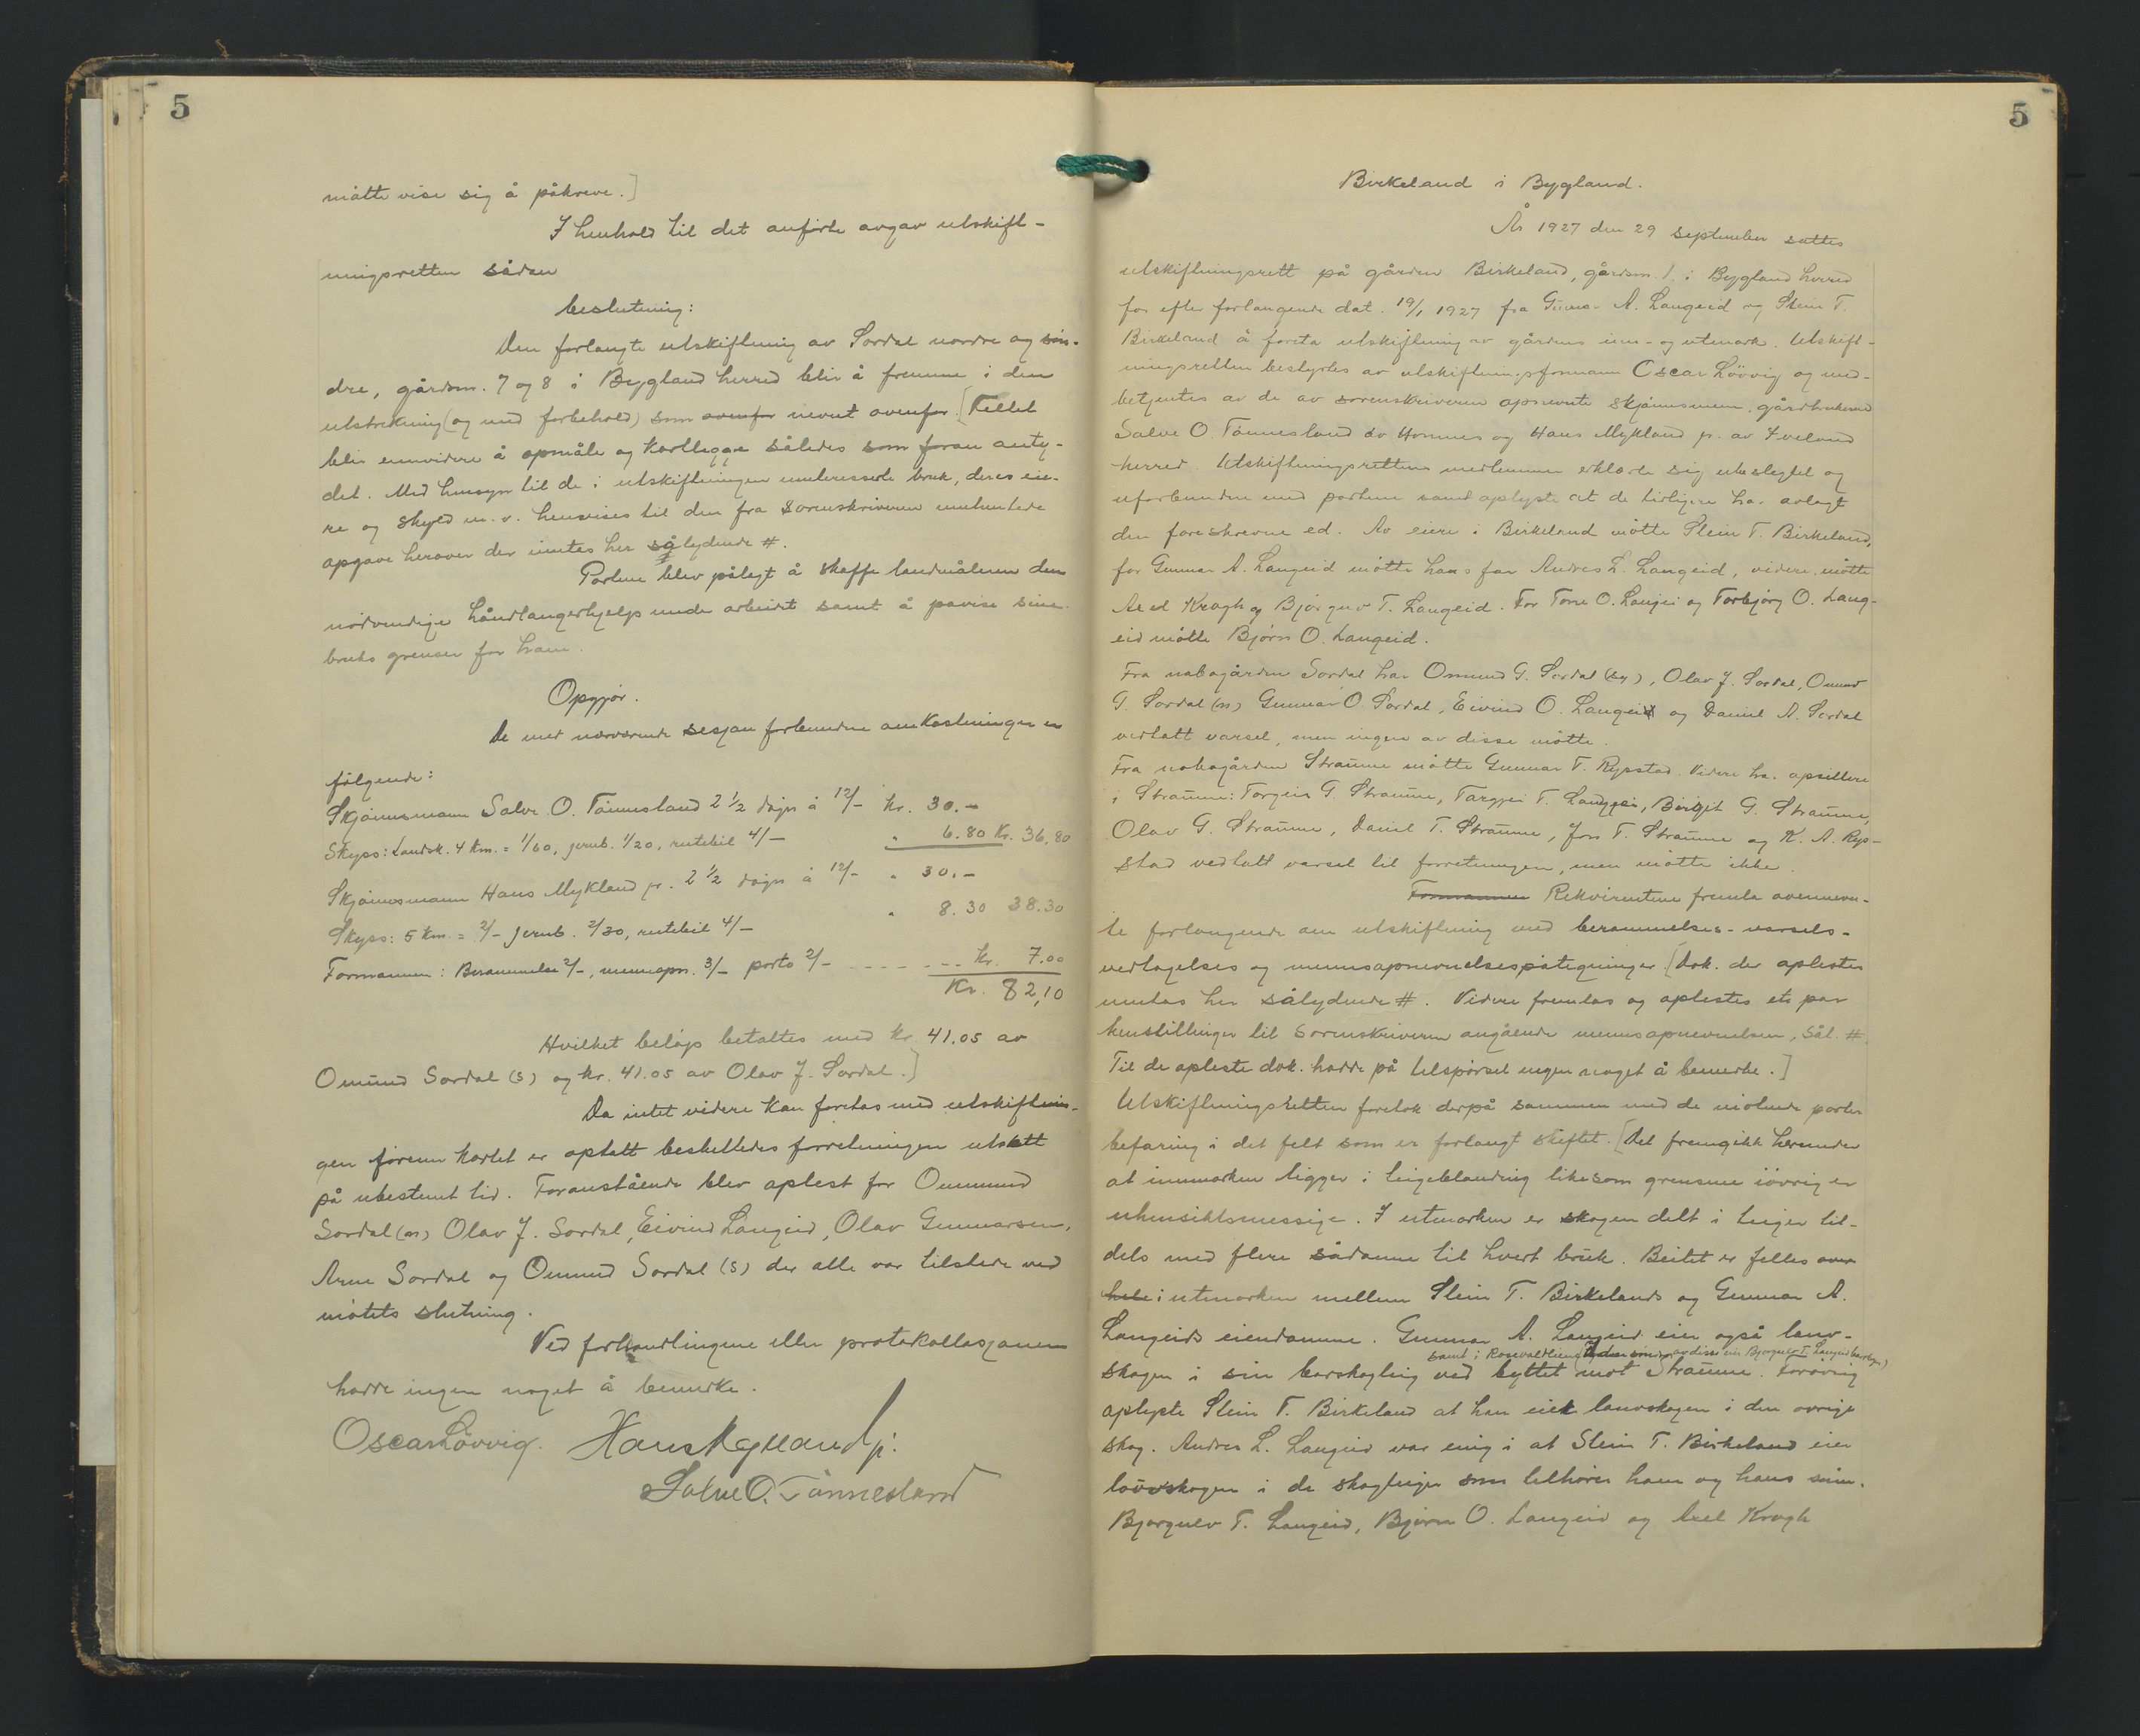 5
måtte vise sig å påkreve.]
I henhold til det anførte avgav utskift-
ningsretten sådan
beslutning:
Den forlangte utskiftning av Sordal nordre og søn-
dre, gårdsnr. 7 og 8 i Bygland herred blir å fremme i den
utstrekning (og med forbehold) som ovenfor nevnt ovenfor. [Feltet
blir ennvidere å opmåle og kartlegge således som foran anty-
det. Med hensyn til de i utskiftningen interesserte bruk, deres eie-
re og skyld m.v. henvises til den fra sorenskriveren innhentede
opgave herover der inntas her sålydende #.
Partene blev pålagt å skaffe landmåleren den
nødvendige håndlangerhjelp under arbeidet samt å påvise sine
bruks grenser for ham.
Opgjør.
De med nærværende sesjon forbundne omkostninger er
følgende:
Skjønnsmann Salve O. Tønnesland 2 1/2 døgn à 12/- kr. 30.-
Skyss: Landsk. 4 km. = 1/60, jernb. 1/20, rutebil 4/- " 6.80 Kr. 36,80
Skjønnsmann Hans Mykland jr. 2 1/2 døgn à 12/- " 30.-
Skyss: 5 km. = 2/- jernb. 2/30, rutebil 4/- " 8.30 38.30
Formannen: Berammelse 2/-, mennopn. 3/- porto 2/- - - - - - - - Kr. 7.00
Kr. 82,10
Hvilket beløp betaltes med kr. 41.05 av
Omund Sordal (s) og kr. 41.05 av Olav J. Sordal.]
Da intet videre kan foretas med utskiftnin-
gen førenn kartet er optatt besluttedes forretningen utsatt
på ubestemt tid. Foranstående blev oplest for Ommund
Sordal (n) Olav J. Sordal, Eivind Langeid, Olav Gunnarsen,
Arne Sordal og Omund Sordal (s) der alle var tilstede ved
møtets slutning.
Ved forhandlingene eller protokollasjonen
hadde ingen noget å bemerke.
Oscar Løvvig. Hans Mykland jr.
Salve O. Tønnesland
5
Birkeland i Bygland.
År 1927 den 29 september sattes
utskiftningsrett på gården Birkeland, gårdsnr. 1 i Bygland herred
for efter forlangende dat. 19/1 1927 fra Gunnar A. Langeid og Stein T.
Birkeland å foreta utskiftning av gårdens inn- og utmark. Utskift-
ningsretten bestyrtes av utskiftningsformann Oscar Løvvig og med-
betjentes av de av sorenskriveren opnevnte skjønnsmenn, gårdbrukerne
Salve O. Tønnesland av Hornnes og Hans Mykland jr. av Iveland
herred. Utskiftningsrettens medlemmer erklærte sig ubeslektet og
uforbundne med partene samt oplyste at de tidligere har avlagt
den foreskrevne ed. Av eiere i Birkeland møtte Stein T. Birkeland,
for Gunnar A. Langeid møtte hans far Andres L. Langeid, videre møtte
Axel Krogh og Bjørgulv T. Langeid. For Tone O. Langei og Torbjørg O. Lang-
eid møtte Bjørn O. Langeid.
Fra nabogården Sordal har Omund G. Sordal (sø), Olav J. Sordal, Omund
G. Sordal (n) Gunnar O. Sordal, Eivind O. Langeid og Daniel A. Sordal
vedtatt varsel, men ingen av disse møtte.
Fra nabogården Straume møtte Gunnar T. Rysstad. Videre har opsittere
i Straume: Torgeir G. Straume, Targjei T. Langgei, Birgit G. Straume,
Olav G. Straume, Daniel T. Straume, Jon T. Straume og K. A. Rys-
stad vedtatt varsel til forretningen, men møtte ikke.
Formannen Rekvirentene fremla ovennevn-
te forlangende om utskiftning med berammelses- varsels-
vedtagelses og mennsopnevnelsespåtegninger. [Dok. der oplestes
inntas her sålydende #. Videre fremlas og oplestes et par
henstillinger til sorenskriveren angående mennsopnevnelsen, sål. #
Til de opleste dok. hadde på tilspørsel ingen noget å bemerke.]
Utskiftningsretten foretok derpå sammen med de møtende parter
befaring i det felt som er forlangt skiftet. [Det fremgikk herunder
at innmarken ligger i teigeblanding likesom grensene iøvrig er
uhensiktsmessige. I utmarken er skogen delt i teiger til-
dels med flere sådanne til hvert bruk. Beitet er felles over
hele i utmarken mellem Stein T. Birkelands og Gunnar A.
Langeids eiendomme. Gunnar A. Langeid eier også lauv-
samt i Rosevaldteigen av disse eier Bjørgulv T. Langeid
skogen i sin barskogteig ved byttet mot Straume. Forøvrig
oplyste Stein T. Birkeland at han eier lauvskogen i den øvrige
skog. Andres L. Langeid var enig i at Stein T. Birkeland eier
løvskogen i de skogteiger som tilhører ham og hans sønn.
Bjørgulv T. Langeid, Bjørn O. Langeid og Axel Krogh